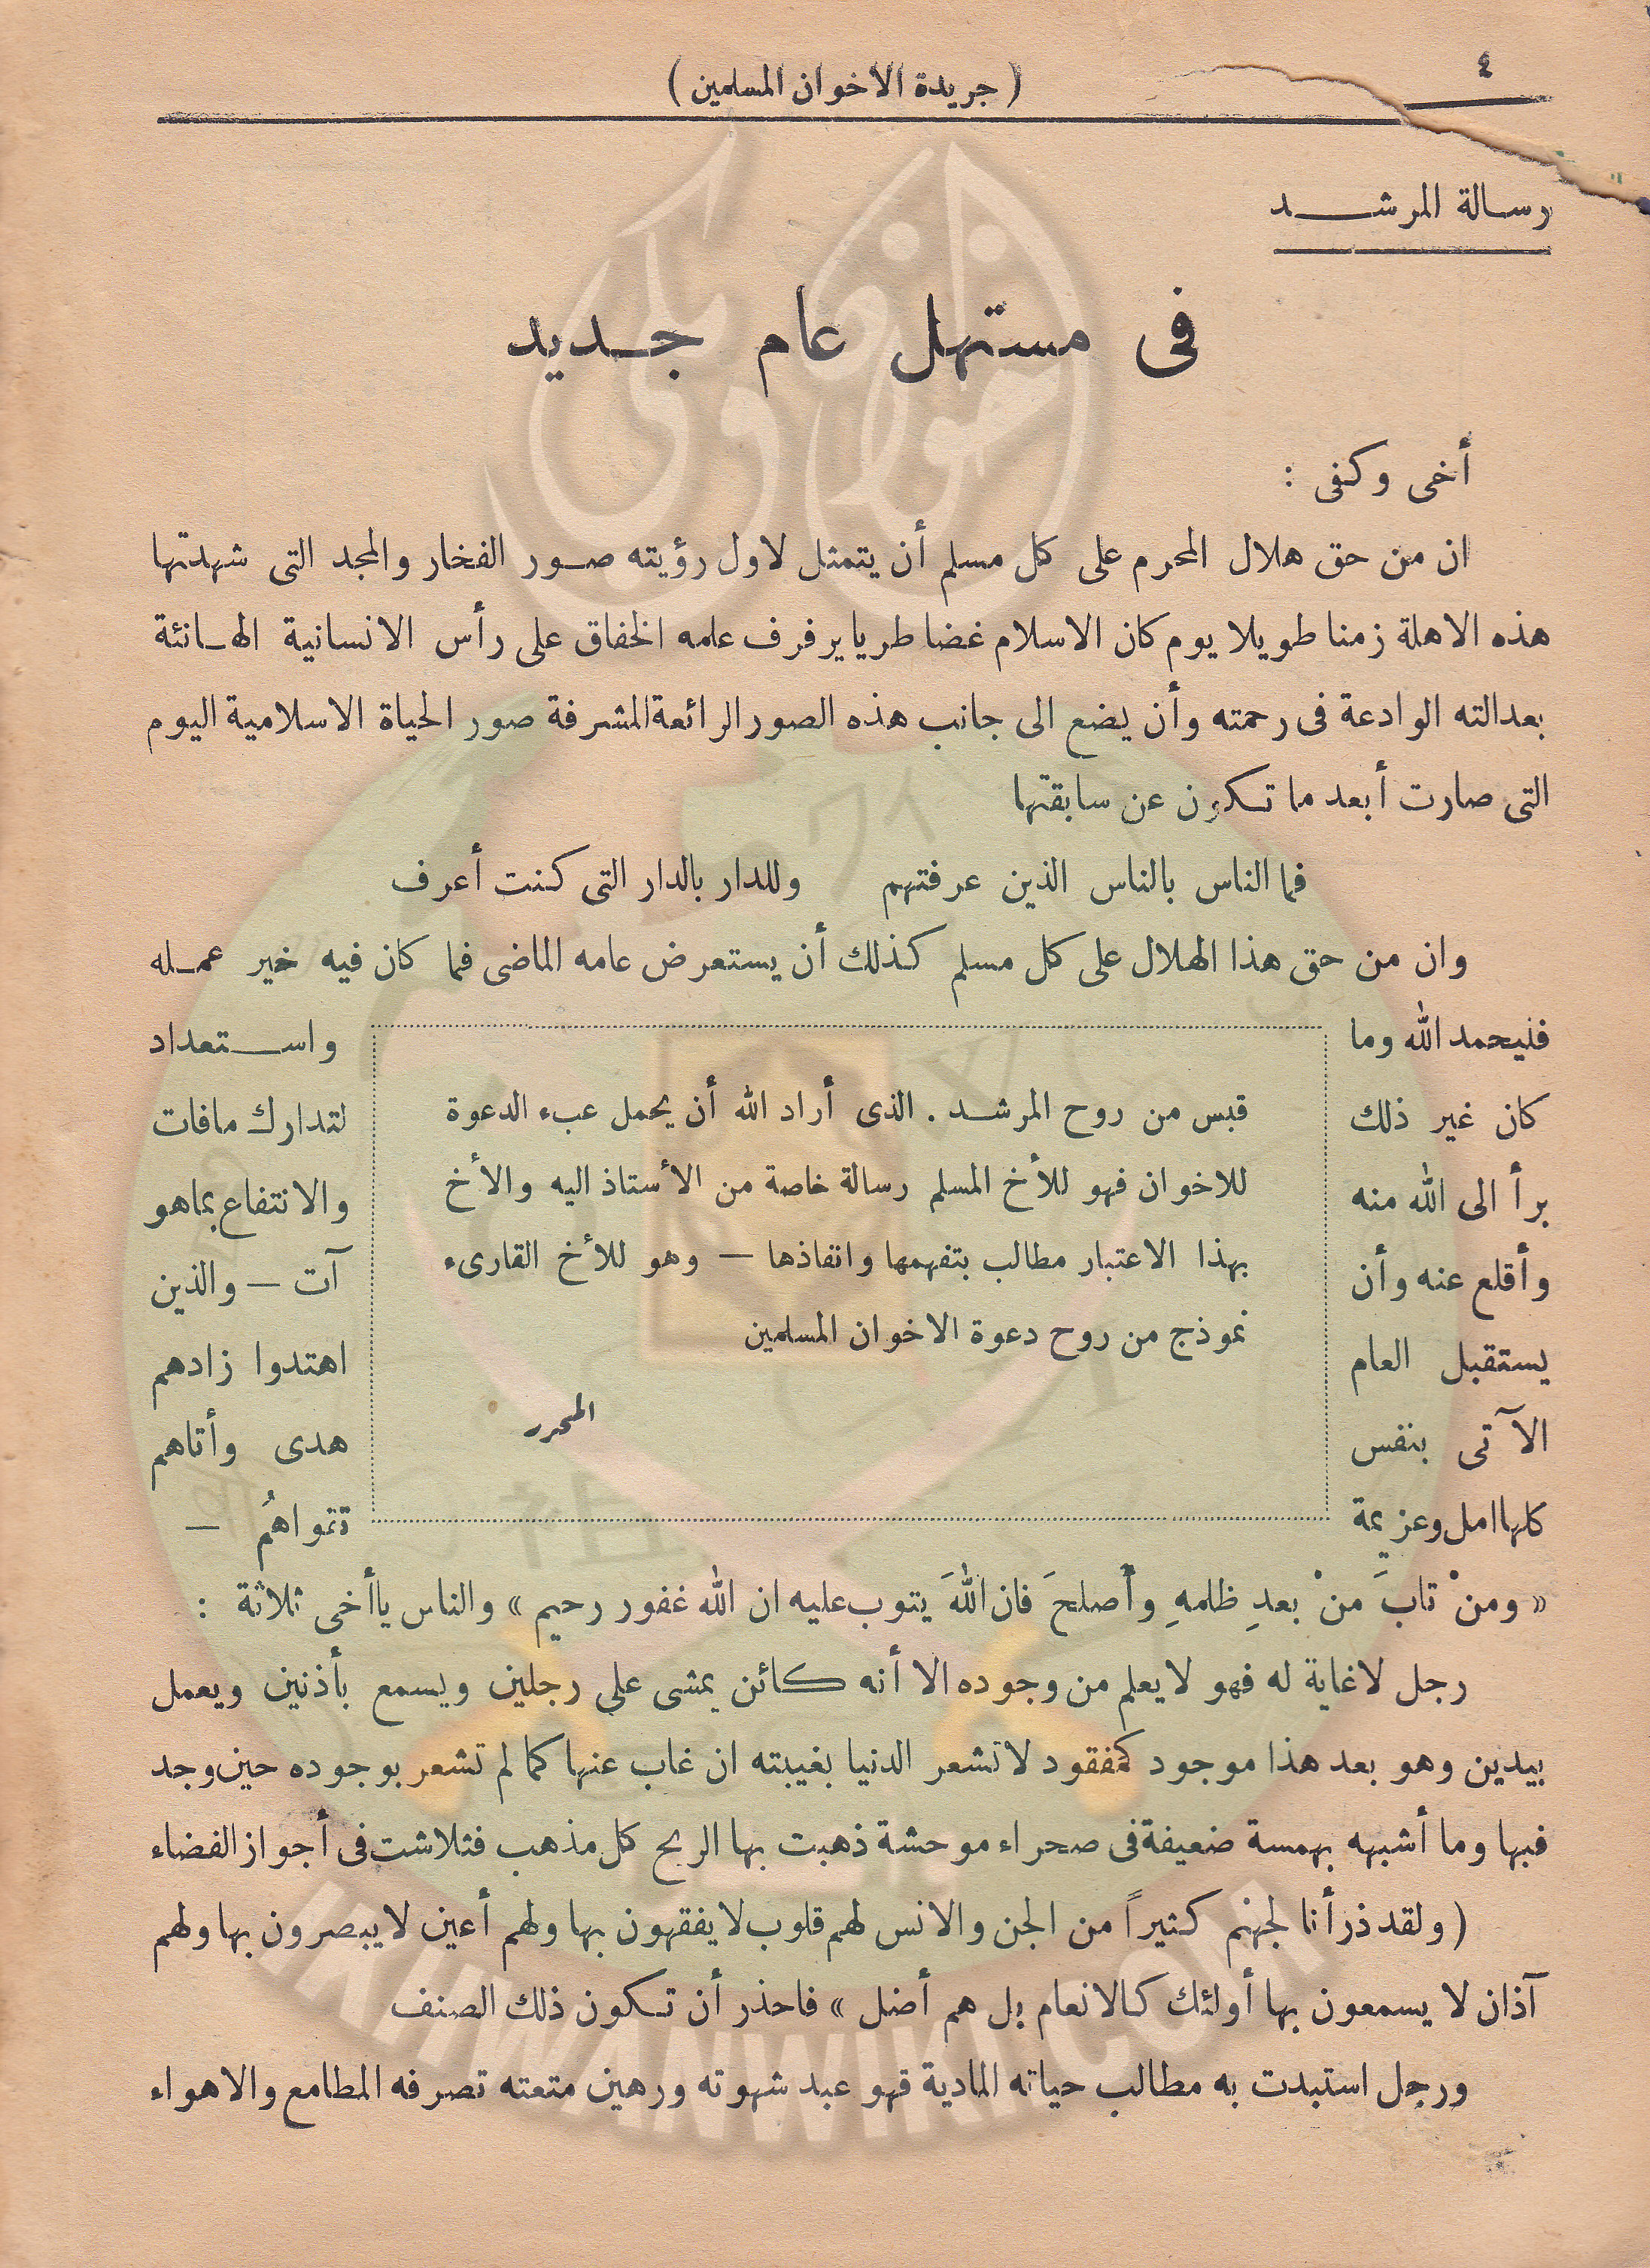 ٤
( جريدة الاخوان المسلمين )
رسالة المرشد
فى مستهل عام جديد
أخى وكفى :
ان من حق هلال المحرم على كل مسلم أن يتمثل لاول رؤيته صور الفخار والمجد التى شهدتها
هذه الاهلة زمنا طويلا يوم كان الاسلام غضا طريا يرفرف علمه الخفاق على رأس الانسانية الهانئة
بعدالته الوادعة فى رحمته وأن يضع الى جانب هذه الصور الرائعة المشرفة صور الحياة الاسلامية اليوم
التى صارت أبعد ما تكون عن سابقتها
فما الناس بالناس الذين عرفتهم وللدار بالدار التى كنت أعرف
وان من حق هذا الهلال على كل مسلم كذلك أن يستعرض عامه الماضى فما كان فيه خير عمله
فليحمد الله وما واستعداد
كان غير ذلك لتدارك مافات
برأ الى الله منه والانتفاع بماهو
وأقلع عنه وأن آت — والذين
يستقبل العام اهتدوا زادهم
الآتى بنفس هدى وأتاهم
كلها امل وعزيمة تقواهُم —
قبس من روح المرشد . الذى أراد الله أن يحمل عبء الدعوة
للاخوان فهو للأخ المسلم رسالة خاصة من الأستاذ اليه والأخ
بهذا الاعتبار مطالب بتفهمها وانفاذها — وهو للأخ القارىء
نموذج من روح دعوة الاخوان المسلمين
المحرر
« ومنْ تابَ منْ بعدِ ظلمهِ وأصلحَ فان اللهَ يتوب عليه ان الله غفور رحيم » والناس ياأخى ثلاثة :
رجل لاغاية له فهو لايعلم من وجوده الا أنه كائن يمشى على رجلين ويسمع بأذنين ويعمل
بيدين وهو بعد هذا موجود كمفقود لاتشعر الدنيا بغيبته ان غاب عنها كما لم تشعر بوجوده حين وجد
فيها وما أشبهه بهمسة ضعيفة فى صحراء موحشة ذهبت بها الريح كل مذهب فتلاشت فى أجواز الفضاء
( ولقد ذرأنا لجهنم كثيراً من الجن والانس لهم قلوب لايفقهون بها ولهم أعين لايبصرون بها ولهم
آذان لا يسمعون بها أولئك كالانعام بل هم أضل » فاحذر أن تكون ذلك الصنف
ورجل استبدت به مطالب حياته المادية فهو عبد شهوته ورهين متعته تصرفه المطامع والاهواء
إخوان ويكي
IKHWANWIKI.COM